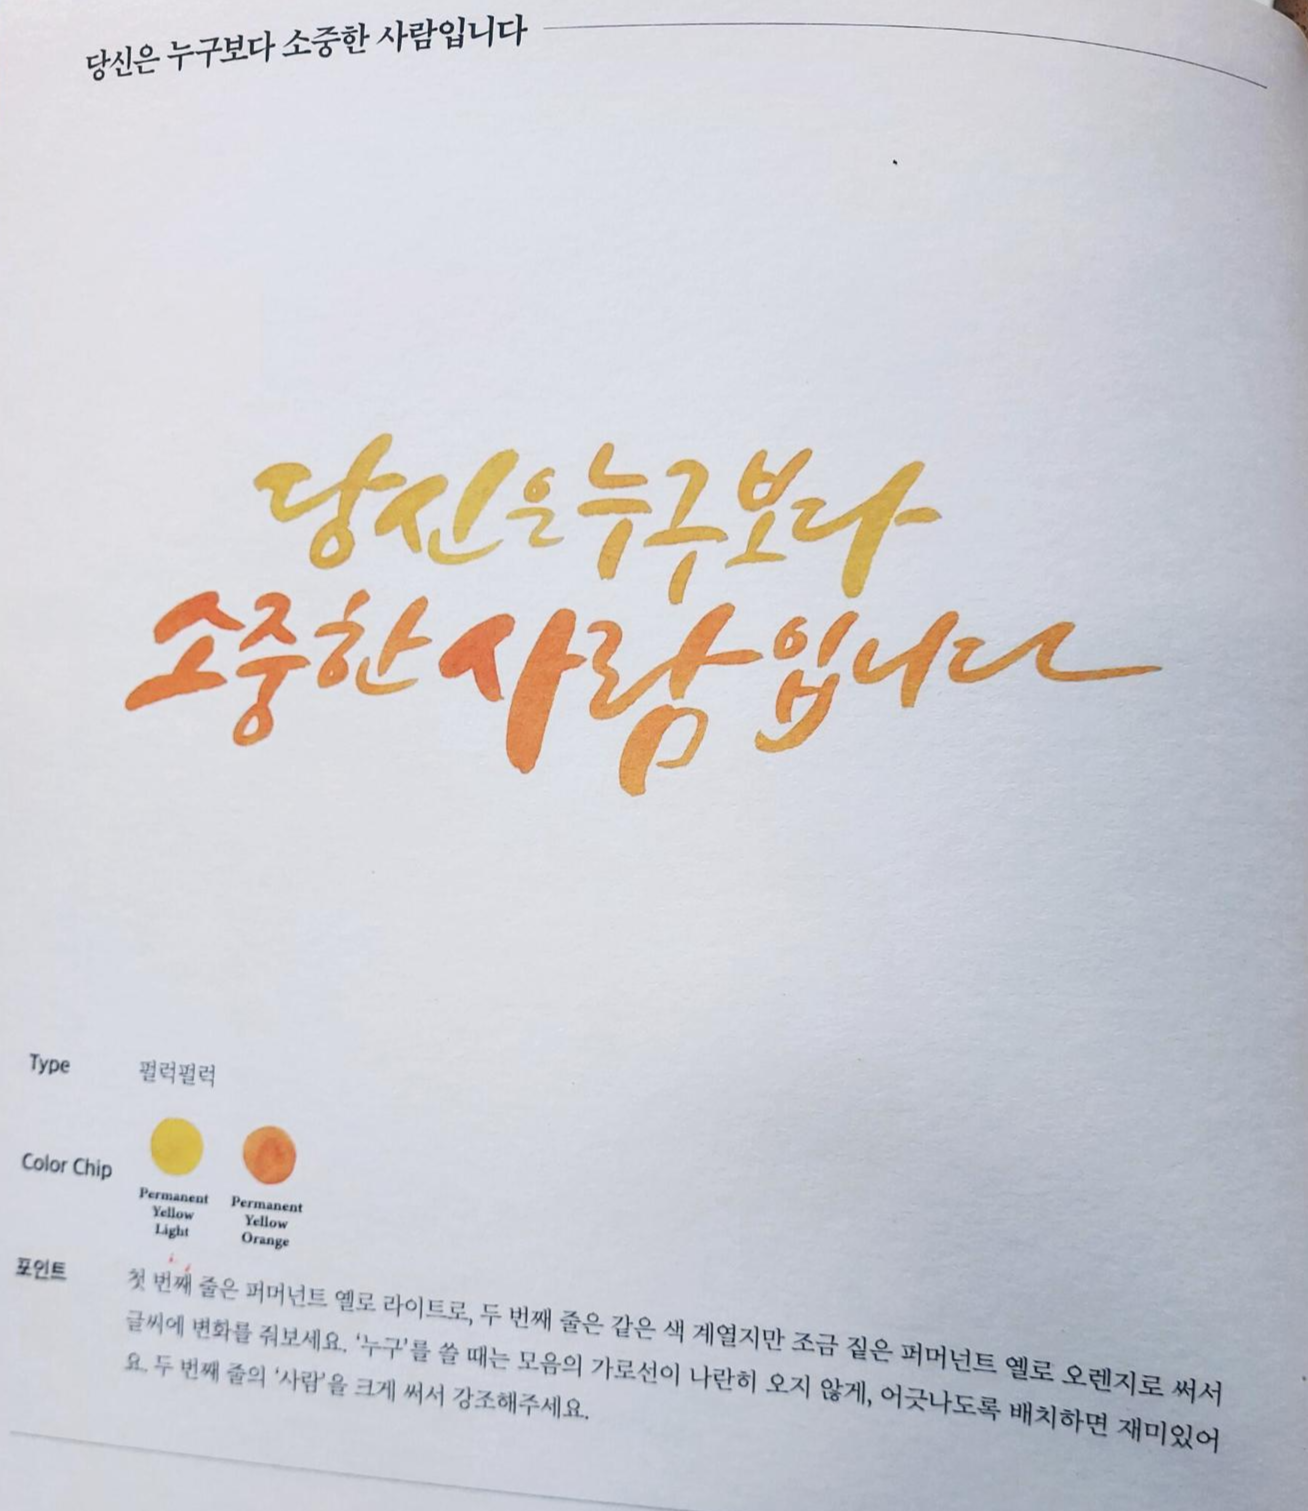 당신은 누구보다 소중한 사람입니다
당신은 누구보다
소중한 사람입니다
Type 펄럭펄럭
Color Chip
Permanent Yellow Light
Permanent Yellow Orange
포인트 첫 번째 줄은 퍼머넌트 옐로 라이트로, 두 번째 줄은 같은 색 계열지만 조금 짙은 퍼머넌트 옐로 오렌지로 써서
글씨에 변화를 줘보세요. ‘누구’를 쓸 때는 모음의 가로선이 나란히 오지 않게, 어긋나도록 배치하면 재미있어
요. 두 번째 줄의 ‘사람’을 크게 써서 강조해주세요.